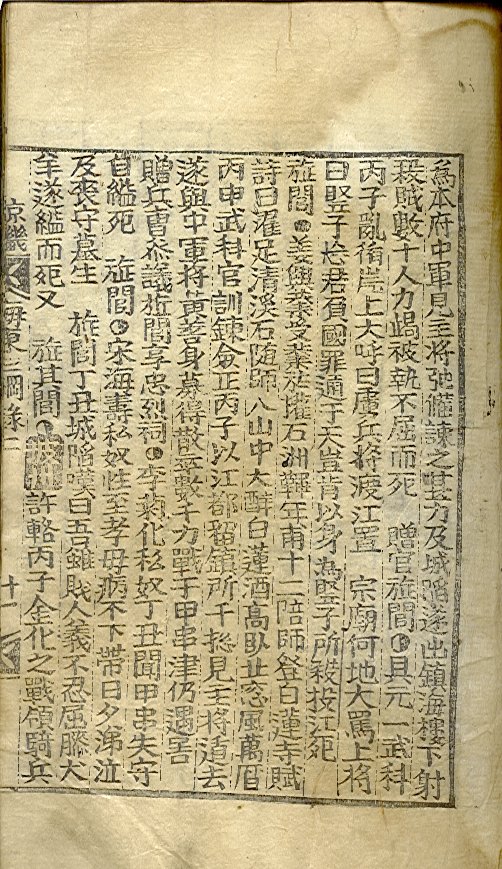 爲本府中軍見主将弛備諫之甚力及城陷遂出鎮海樓下射
殺賊數十人力竭被執不屈而死 贈官旌閭 具元一武科
丙子亂循岸上大呼曰虜兵将渡江置 宗廟何地大罵上将
曰竪子忘君負國罪通于天豈肯以身爲竪子所殺投江死
旌閭 姜興業受業於權石洲韠年甫十二陪師登白蓮寺賦
詩曰濯足清溪石随師入山中大醉白蓮酒高臥北窓風萬曆
丙申武科官訓鍊僉正丙子以江都留鎮所千摠見主将遁去
遂與中軍将黃善身募得散卒數千力戰于甲串津仍遇害
贈兵曹叅議旌閭享忠烈祠 李菊化私奴丁丑聞甲串失守
自縊死 旌閭 宋海壽私奴性至孝母病不下帶日夕涕泣
及喪守墓生 旌閭丁丑城陷嘆曰吾雖賎人義不忍屈膝犬
羊遂縊而死又 旌其閭 許輅丙子金化之戰領騎兵
京畿 海東三綱录二 十一